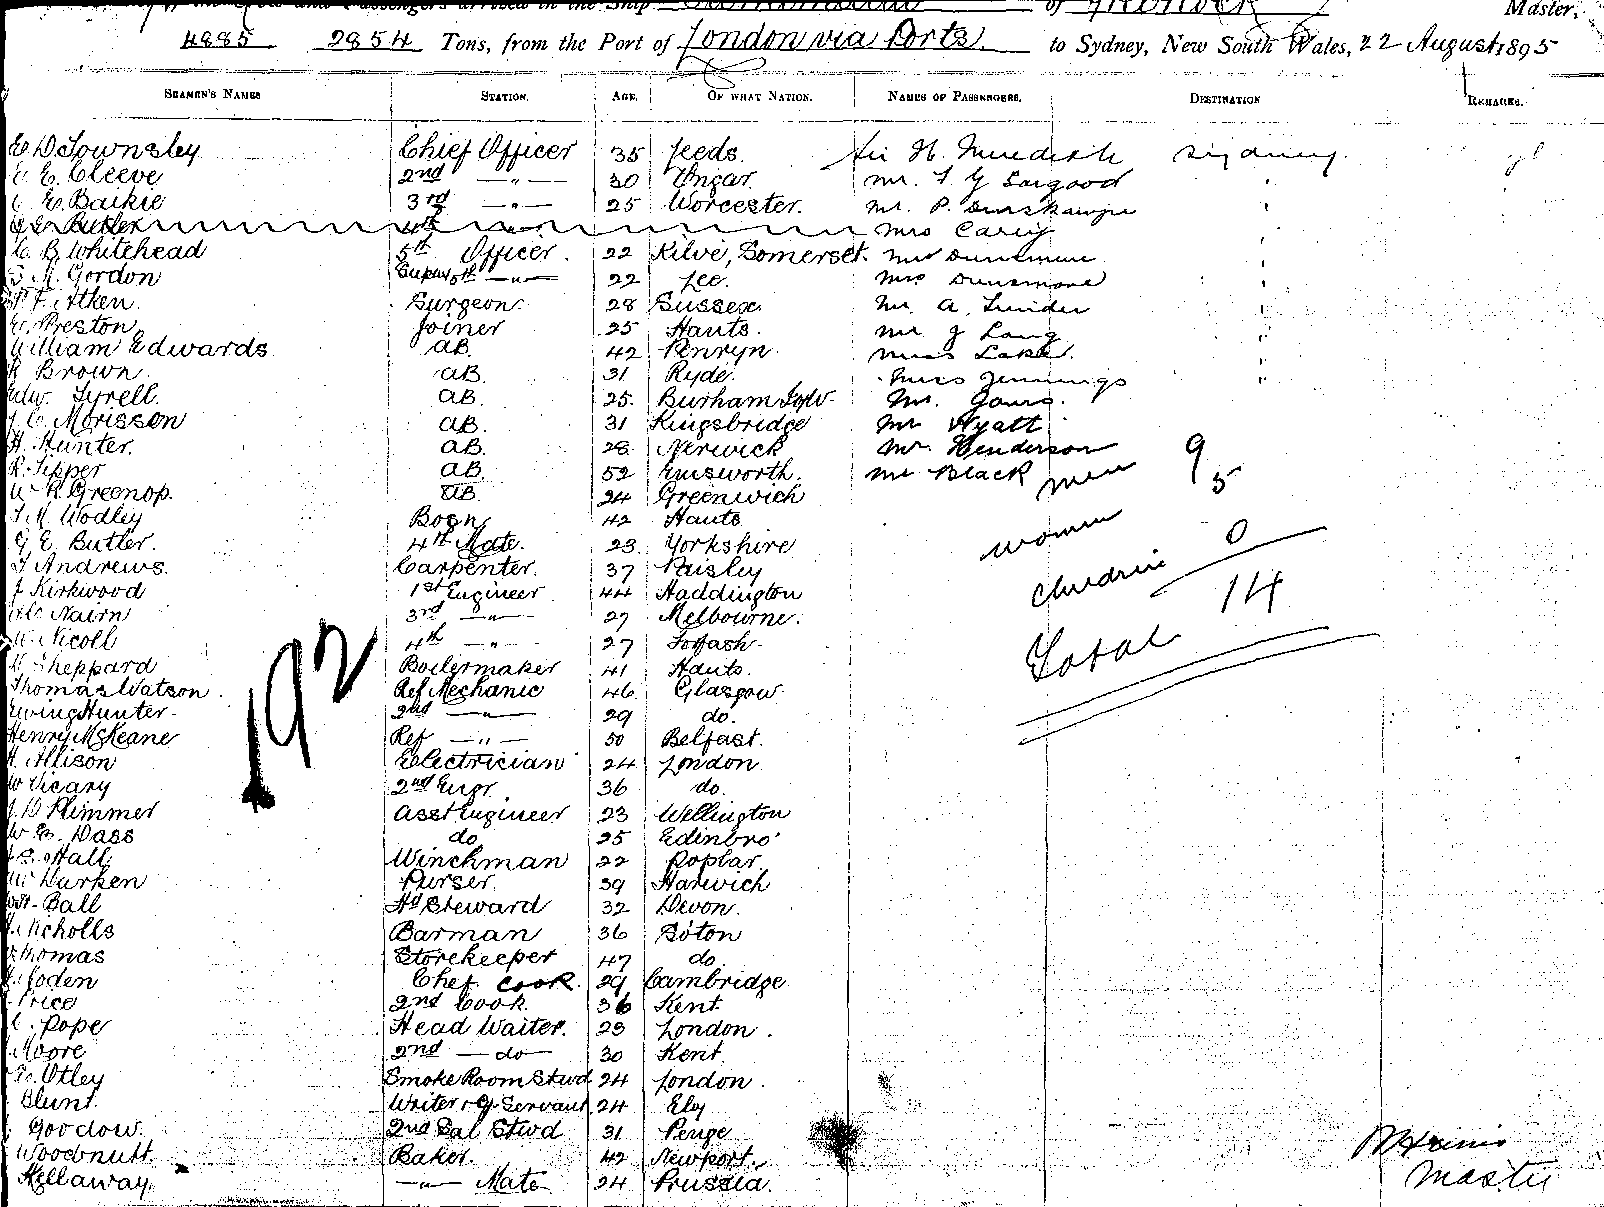 Crew and Passengers arrived in the Ship of Greenock Master,
4885 2854 Tons, from the Port of London via Ports to Sydney, New South Wales, 22 August 1895
SEAMEN'S NAMES STATION. AGE. OF WHAT NATION. NAMES OF PASSENGERS. DESTINATION REMARKS.
Townsley Chief Officer 35 Leeds. Sir H. Meredith Sydney.
E. Cleeve 2nd —"— 30 Ongar Mr. Sargood "
E. Baikie 3rd —"— 25 Worcester. Mr. P. "
Butler 4th " Mrs Carey "
B. Whitehead 5th Officer. 22 Kilve, Somerset. Dunsmure "
M. Gordon 5th —"— 22 Lee. Mrs Dunsmore "
F. Aitken Surgeon. 28 Sussex Mr. A. "
Preston Joiner 25 Hants. Mr J Lang "
William Edwards AB. 42 Penryn. Miss Lake. "
Brown. AB. 31 Ryde. Miss Jennings "
Edw. Tyrell. AB. 25. Burham Mr.
C. Morisson AB. 31 Kingsbridge Mr Wyatt
H. Hunter. AB. 28. Mr. Henderson
R. Tipper AB. 52 Emsworth. Mr Black men 9
W. R. Greenop. AB. 24 Greenwich 5
M. Wodley Bosn 42 Hants women
G E. Butler. 4th Mate. 23. Yorkshire 0
Andrews. Carpenter. 37 Paisley children
J Kirkwood 1st Engineer 44 Haddington 14
Nairn 3rd —"— 27 Melbourne.
W. Nicoll 4th —"— 27 Total
Sheppard Boilermaker 41 Hants.
192
Thomas Watson. Ref Mechanic 46 Glasgow
Ewing Hunter. 2nd —"— 29 do.
Henry McKeane Ref —"— 50 Belfast.
H. Allison Electrician 24 London
W Vicary 2nd Engr. 36 do.
D Plimmer Asst Engineer 23 Wellington
W Dass do 25 Edinbro'
Hall. Winchman 22 Poplar
Durken Purser. 39 Harwich
Ball Hd Steward 32 Devon.
Nicholls Barman 36 Boton
Thomas Storekeeper 47 do.
Foden Chef. Cook. 29 Cambridge
Price 2nd Cook. 36 Kent.
Pope Head Waiter. 23 London.
Moore 2nd —do— 30 Kent.
Otley Smoke Room Stwd. 24 London.
Blunt. Writer & Servant 24 Ely
Goodow. 2nd Sal Stwd 31 Penge
Woodnutt. Baker. 42 Newport.
Kellaway. —"— Mate 24 Prussia.
Master